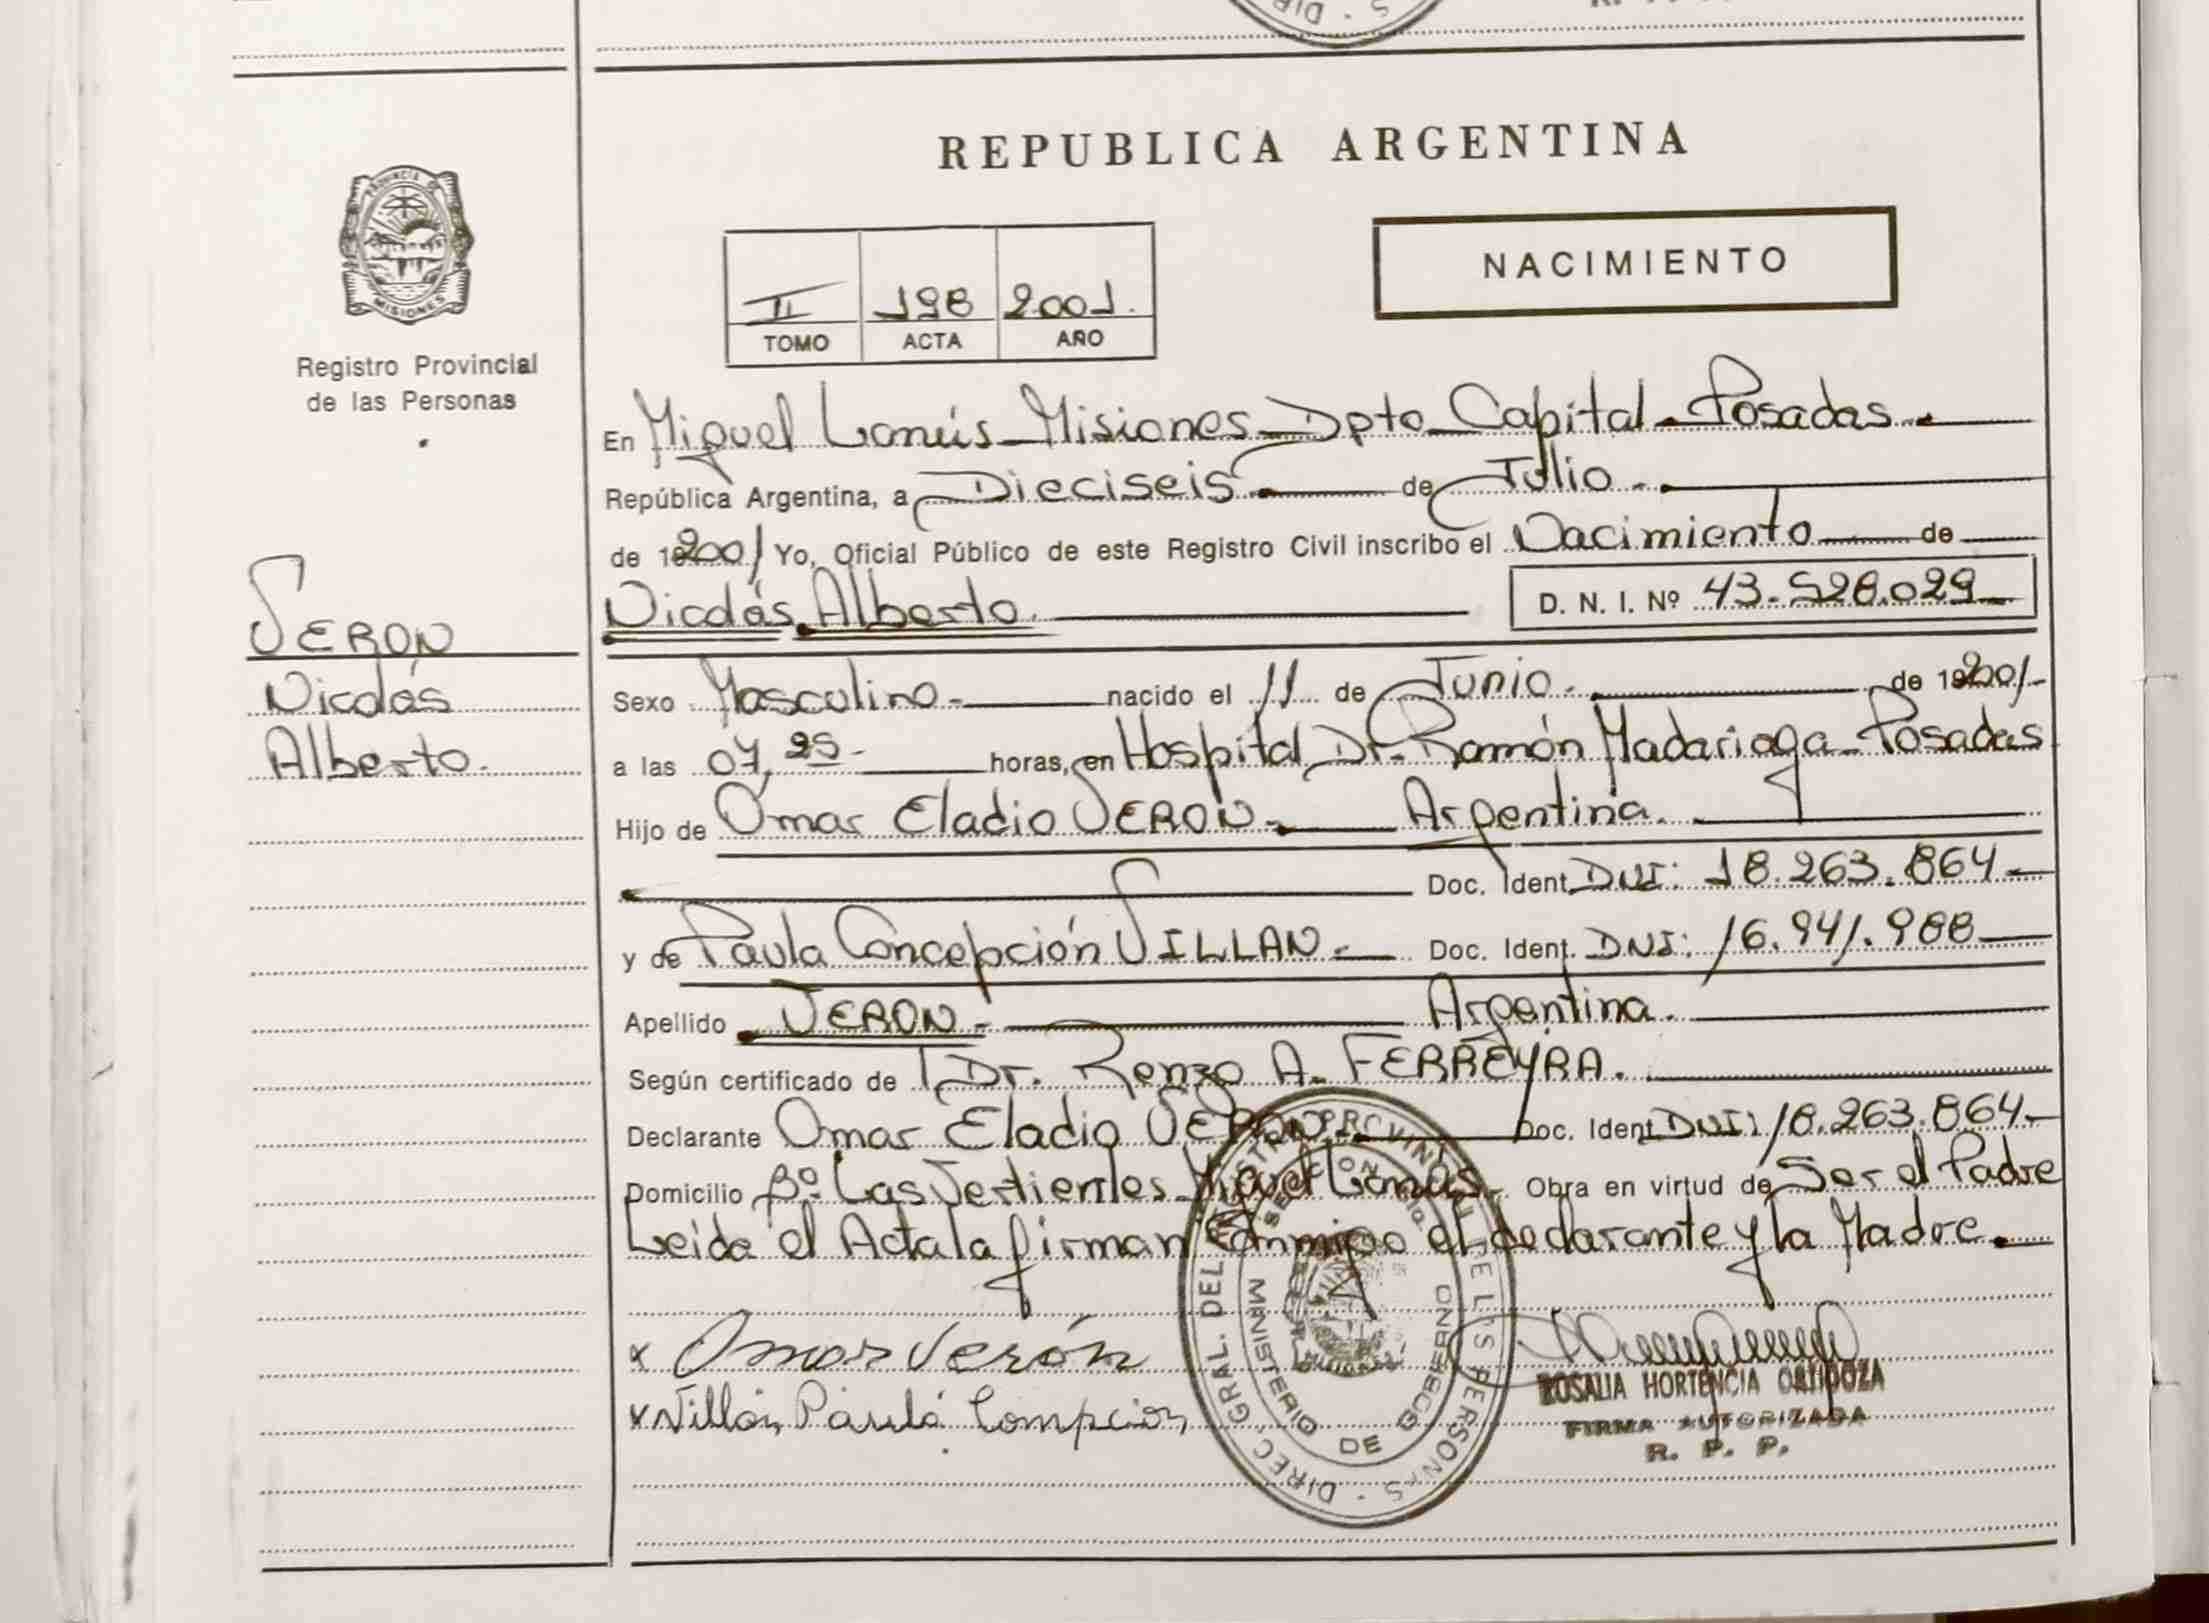 REPUBLICA ARGENTINA
PROVINCIA DE
MISIONES
Registro Provincial
de las Personas
NACIMIENTO
II 198 2001.
TOMO ACTA AÑO
En Miguel Lanús Misiones Dpto Capital - Posadas
República Argentina, a Dieciseis de Julio
de 2001 Yo, Oficial Público de este Registro Civil inscribo el Nacimiento de
Nicolás Alberto. D. N. I. Nº 43.528.029
VERON
Nicolás
Alberto.
Sexo Masculino nacido el 11 de Junio de 2001
a las 07,25 horas, en Hospital Dr. Ramón Madariaga Posadas
Hijo de Omar Eladio VERON Argentina.
Doc. Ident. DNI: 18.263.864
y de Paula Concepción VILLAN Doc. Ident. DNI: 16.941.988
Apellido VERON Argentina.
Según certificado de Dr. Renzo A. FERREYRA.
Declarante Omar Eladio VERON Doc. Ident. DNI: 18.263.864
Domicilio Bº Las Vertientes Miguel Lanús Obra en virtud de Ser el Padre
Leida el Acta la firman Conmigo el declarante y la Madre.
x Omar Verón
x Villán Paula
ROSALIA HORTENCIA
FIRMA AUTORIZADA
R. P. P.
DIREC. GRAL. DEL PROVINCIAL DE LAS PERSONAS
MINISTERIO DE GOBIERNO